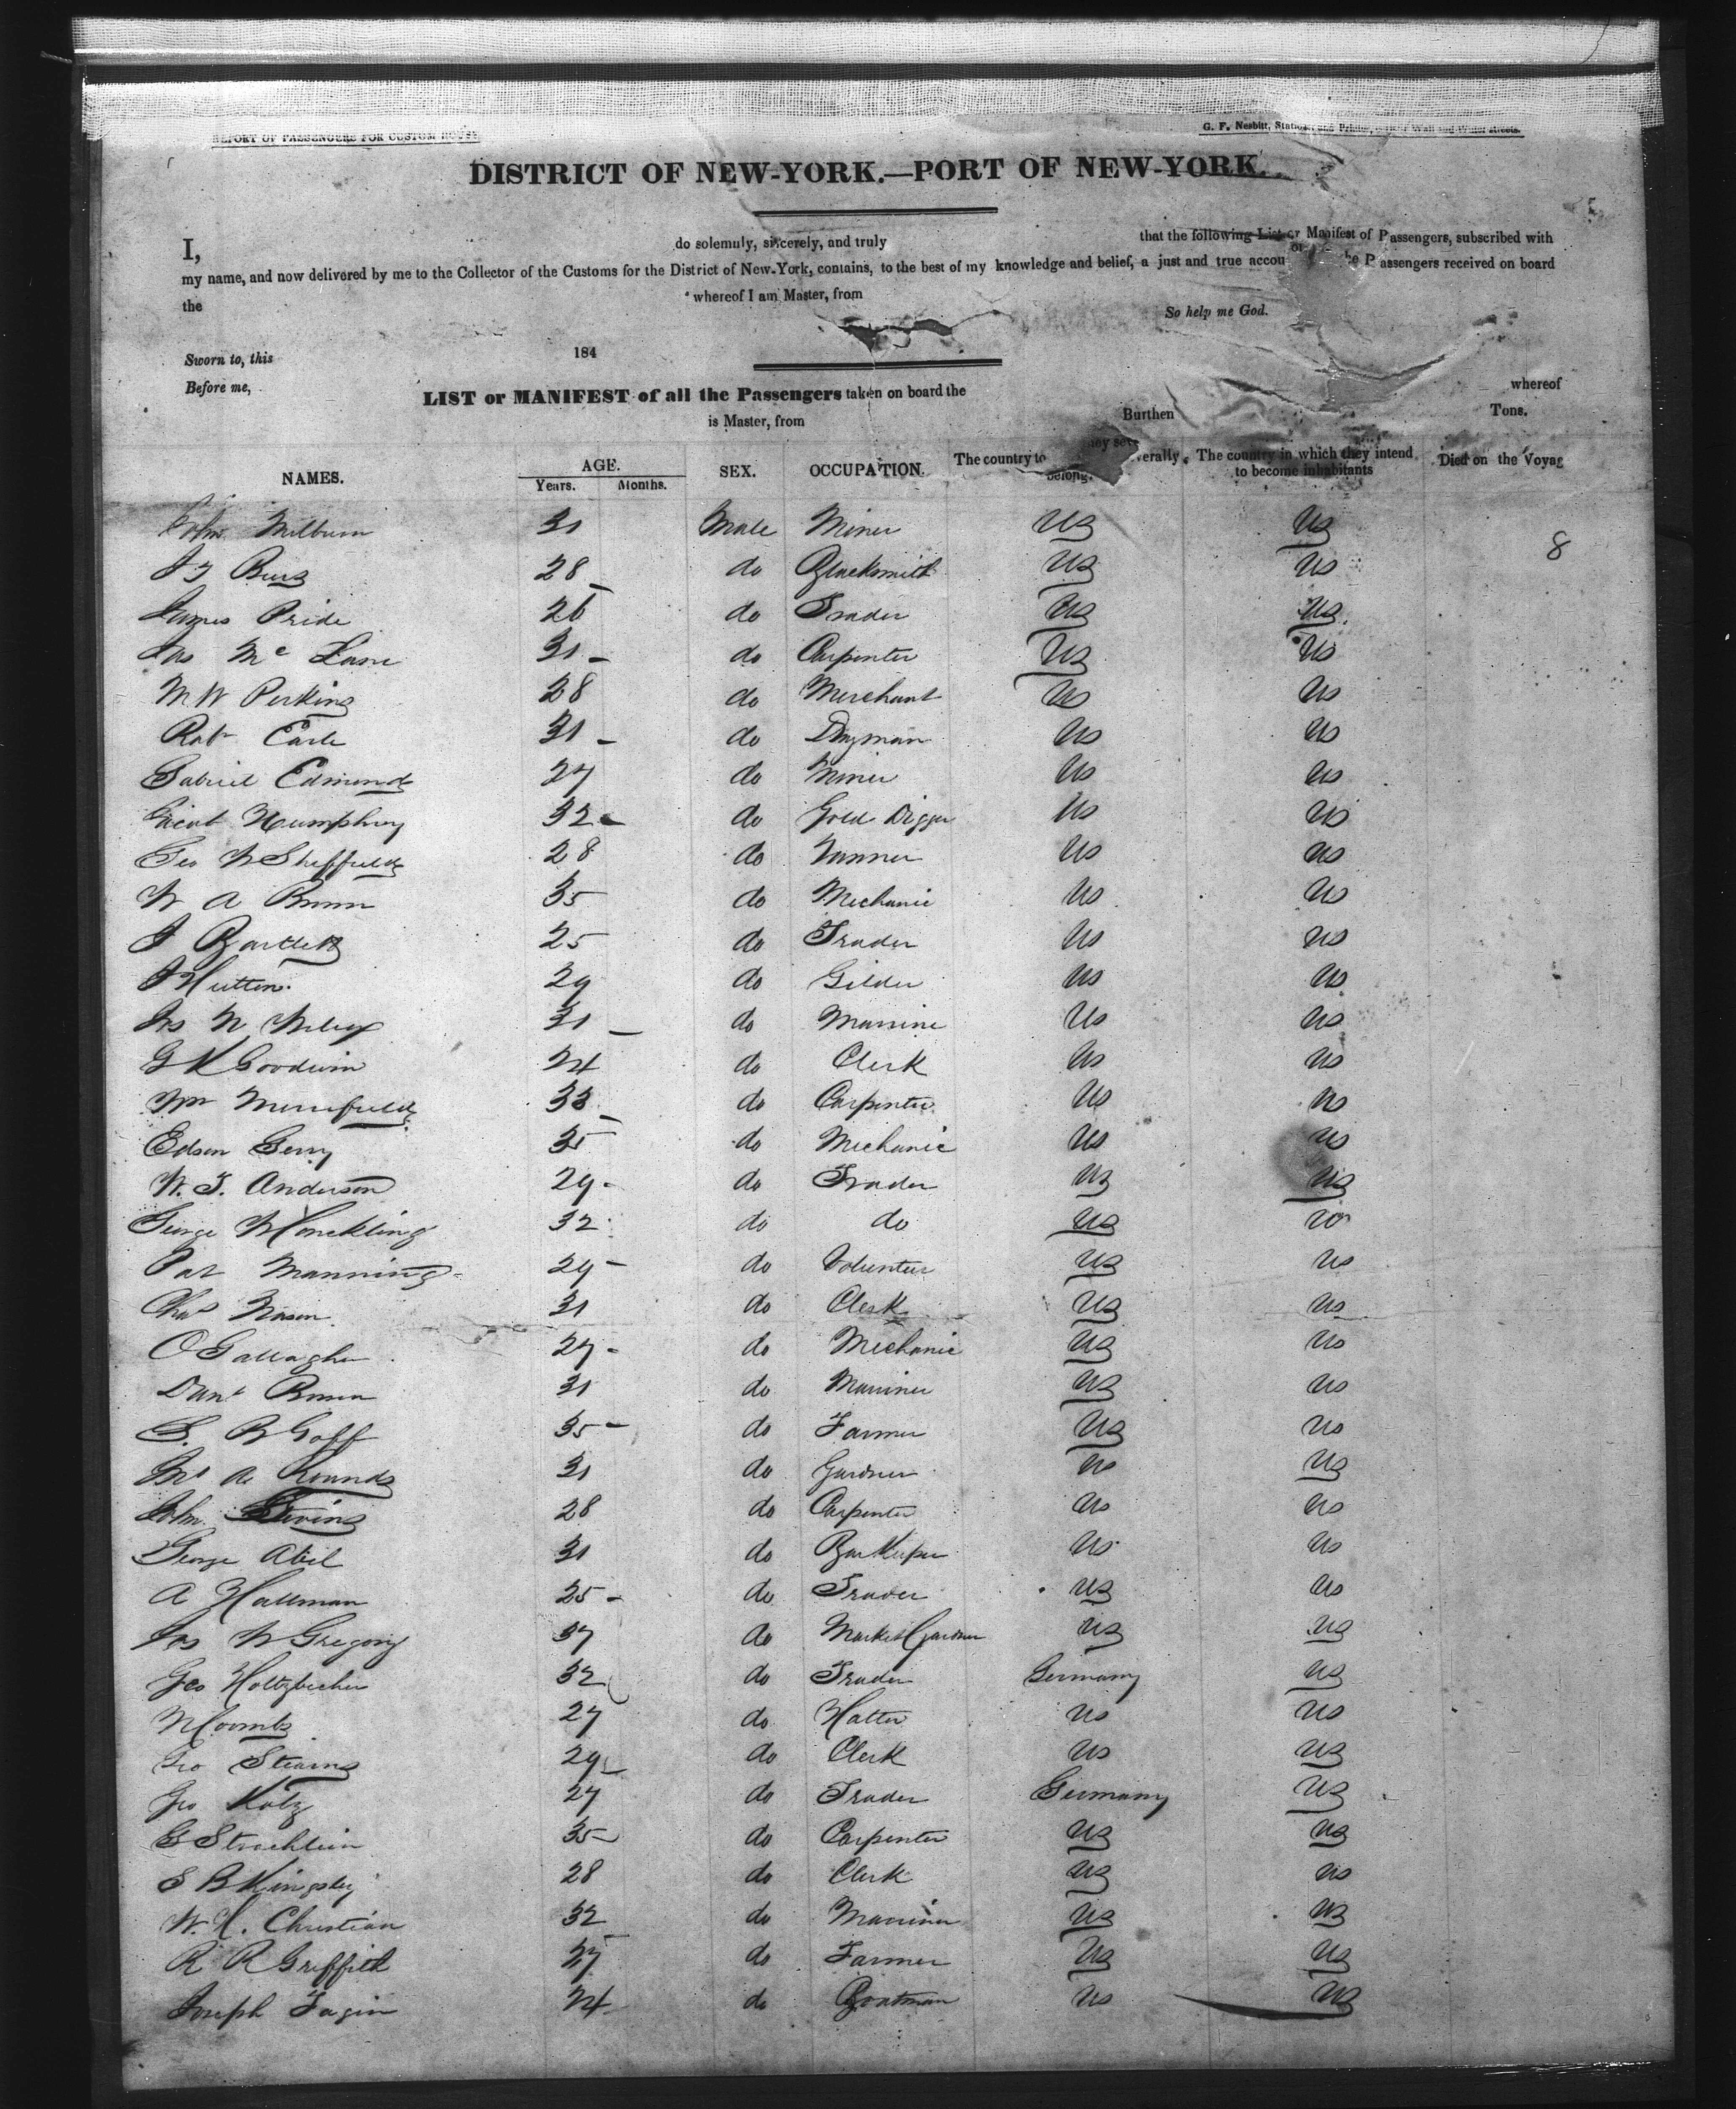 REPORT OF PASSENGERS FOR CUSTOM HOUSE
G. F. Nesbitt, Stationer and Printer, Wall and Water streets.
DISTRICT OF NEW-YORK.—PORT OF NEW-YORK.
I, do solemnly, sincerely, and truly that the following List or Manifest of Passengers, subscribed with
my name, and now delivered by me to the Collector of the Customs for the District of New-York, contains, to the best of my knowledge and belief, a just and true accou he Passengers received on board
the whereof I am Master, from
So help me God.
Sworn to, this 184
Before me,
LIST or MANIFEST of all the Passengers taken on board the whereof
is Master, from Burthen Tons.
NAMES. AGE. Years. Months. SEX. OCCUPATION. The country to they severally belong. The country in which they intend to become inhabitants Died on the Voyag
John Milburn 31 Male Miner US US
8
J T 28 do Blacksmith US US
James Pride 26 do Trader US US
Jas Mc Lane 31 do Carpenter US US
M W Perkins 28 do Merchant US US
Robt Earle 31 do Drayman US US
Gabriel Edmonds 27 do Miner US US
Humphrey 32 do Gold Digger US US
Geo W Sheffield 28 do Tanner US US
W A Brown 35 do Mechanic US US
J Bartlett 25 do Trader US US
J Hutton 29 do Gilder US US
Jas N 31 do Marrine US US
G K Goodwin 24 do Clerk US US
Wm Merrifield 33 do Carpenter US US
Edson Gerry 35 do Mechanic US US
W. T. Anderson 29 do Trader US US
George W 32 do do US US
Pat Manning 29 do Volunteer US US
Chas Nason 31 do Clerk US US
O Gallagher 27 do Mechanic US US
Danl Brown 31 do Marriner US US
S. B Goff 35 do Farmer US US
A Rounds 31 do Gardner US US
John 28 do Carpenter US US
George Abel 31 do Bar Keeper US US
A Hallman 25 do Trader US US
Jas W Gregory 37 do Market Gardner US US
Geo Holtzbecher 32 do Trader Germany US
N Coombs 27 do Hatter US US
Geo Stearns 29 do Clerk US US
Geo Katz 27 do Trader Germany US
G Stroehlein 35 do Carpenter US US
S B Kingsley 28 do Clerk US US
W. H. Christian 32 do Marriner US US
R R Griffith 27 do Farmer US US
Joseph Fagin 24 do Boatman US US